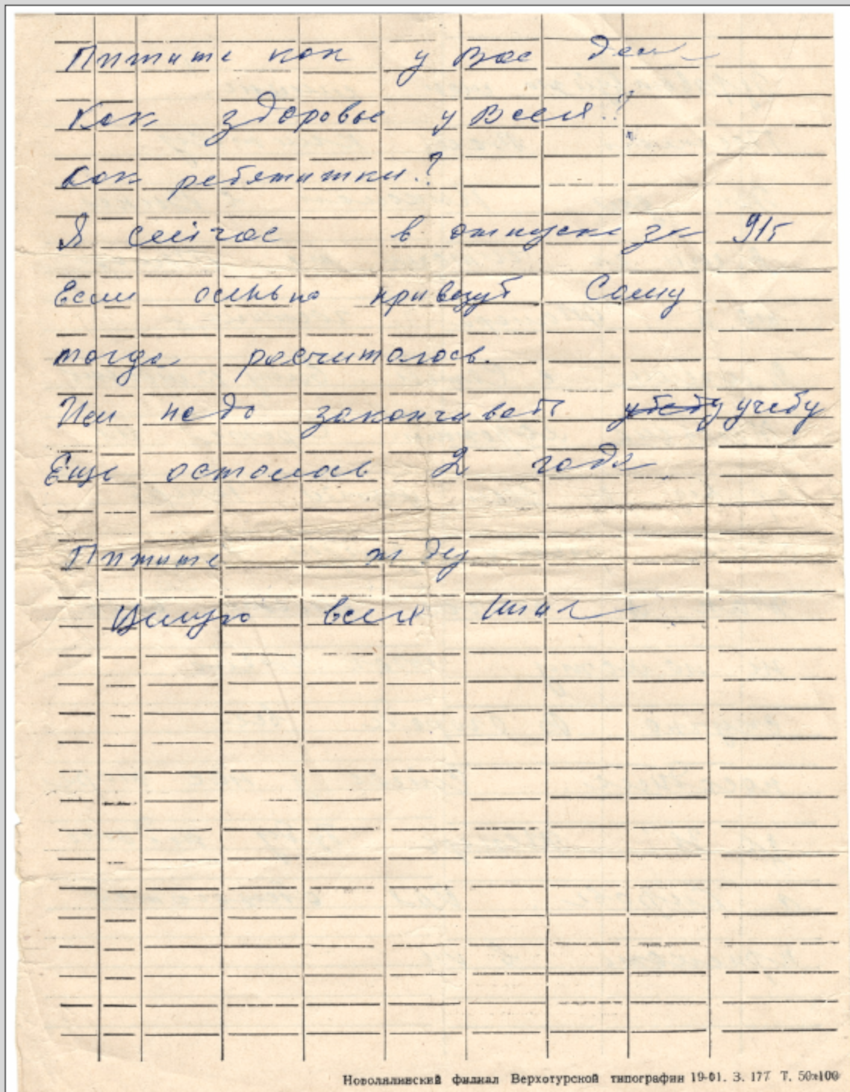 Пишите как у Вас дела
Как здоровье у Всех?
Как ребятишки?
Я сейчас в отпуске за 91г
Если осенью привезут Сашу
тогда расчиталась.
Им надо заканчивать учебу
Еще осталось 2 года
Пишите жду
Целую всех
Новолялинский филиал Верхотурской типографии 19-01. З. 177 Т. 50×100